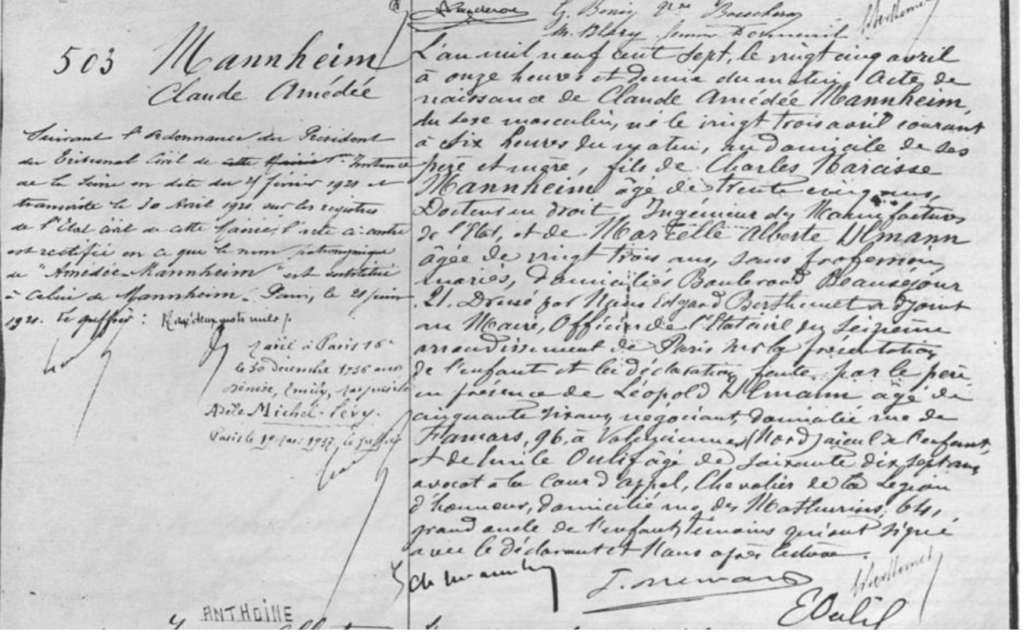 503 Mannheim
Claude Amédée
Suivant Ordonnance du Président
du Tribunal Civil de 1re Instance
de la Seine en date du février 1921 et
transcrite le 30 Avril 1921 sur les registres
de l'Etat civil de cette Mairie, l'acte ci-contre
est rectifié en ce que le nom patronymique
de "Amédée-Mannheim" est substitué
à celui de Mannheim. Paris, le 21 juin
1921. Le greffier : Rayé deux mots nuls
Marié à Paris 16e
le 30 décembre 1936 avec
Denise, Emily,
Adèle Michel-Lévy.
Paris le 1937, le greffier
ANTHOINE
G. Bonin
L'an mil neuf cent sept, le vingt cinq avril
à onze heures et demie du matin, Acte de
naissance de Claude Amédée Mannheim,
du sexe masculin, né le vingt trois avril courant
à six heures du matin, au domicile de ses
père et mère, fils de Charles Narcisse
Mannheim âgé de trente cinq ans,
Docteur en droit, Ingénieur des Manufactures
de l'Etat, et de Marcelle Alberte Ulmann
âgée de vingt trois ans, sans profession,
mariés, domiciliés Boulevard Beauséjour
21. Dressé par Nous Edgard Berthemet adjoint
au Maire, Officier de l'Etat civil du seizième
arrondissement de Paris sur la présentation
de l'enfant et la déclaration faite par le père
en présence de Léopold Ulmann âgé de
cinquante six ans, négociant, domicilié rue de
Famars, 96, à Valenciennes (Nord) aïeul de l'enfant,
et de Emile Oulif âgé de soixante dix sept ans
avocat à la Cour d'appel, Chevalier de la Légion
d'honneur, domicilié rue des Mathurins, 64,
grand oncle de l'enfant, témoins qui ont signé
avec le déclarant et Nous après lecture.
Ch Mannheim
E Oulif